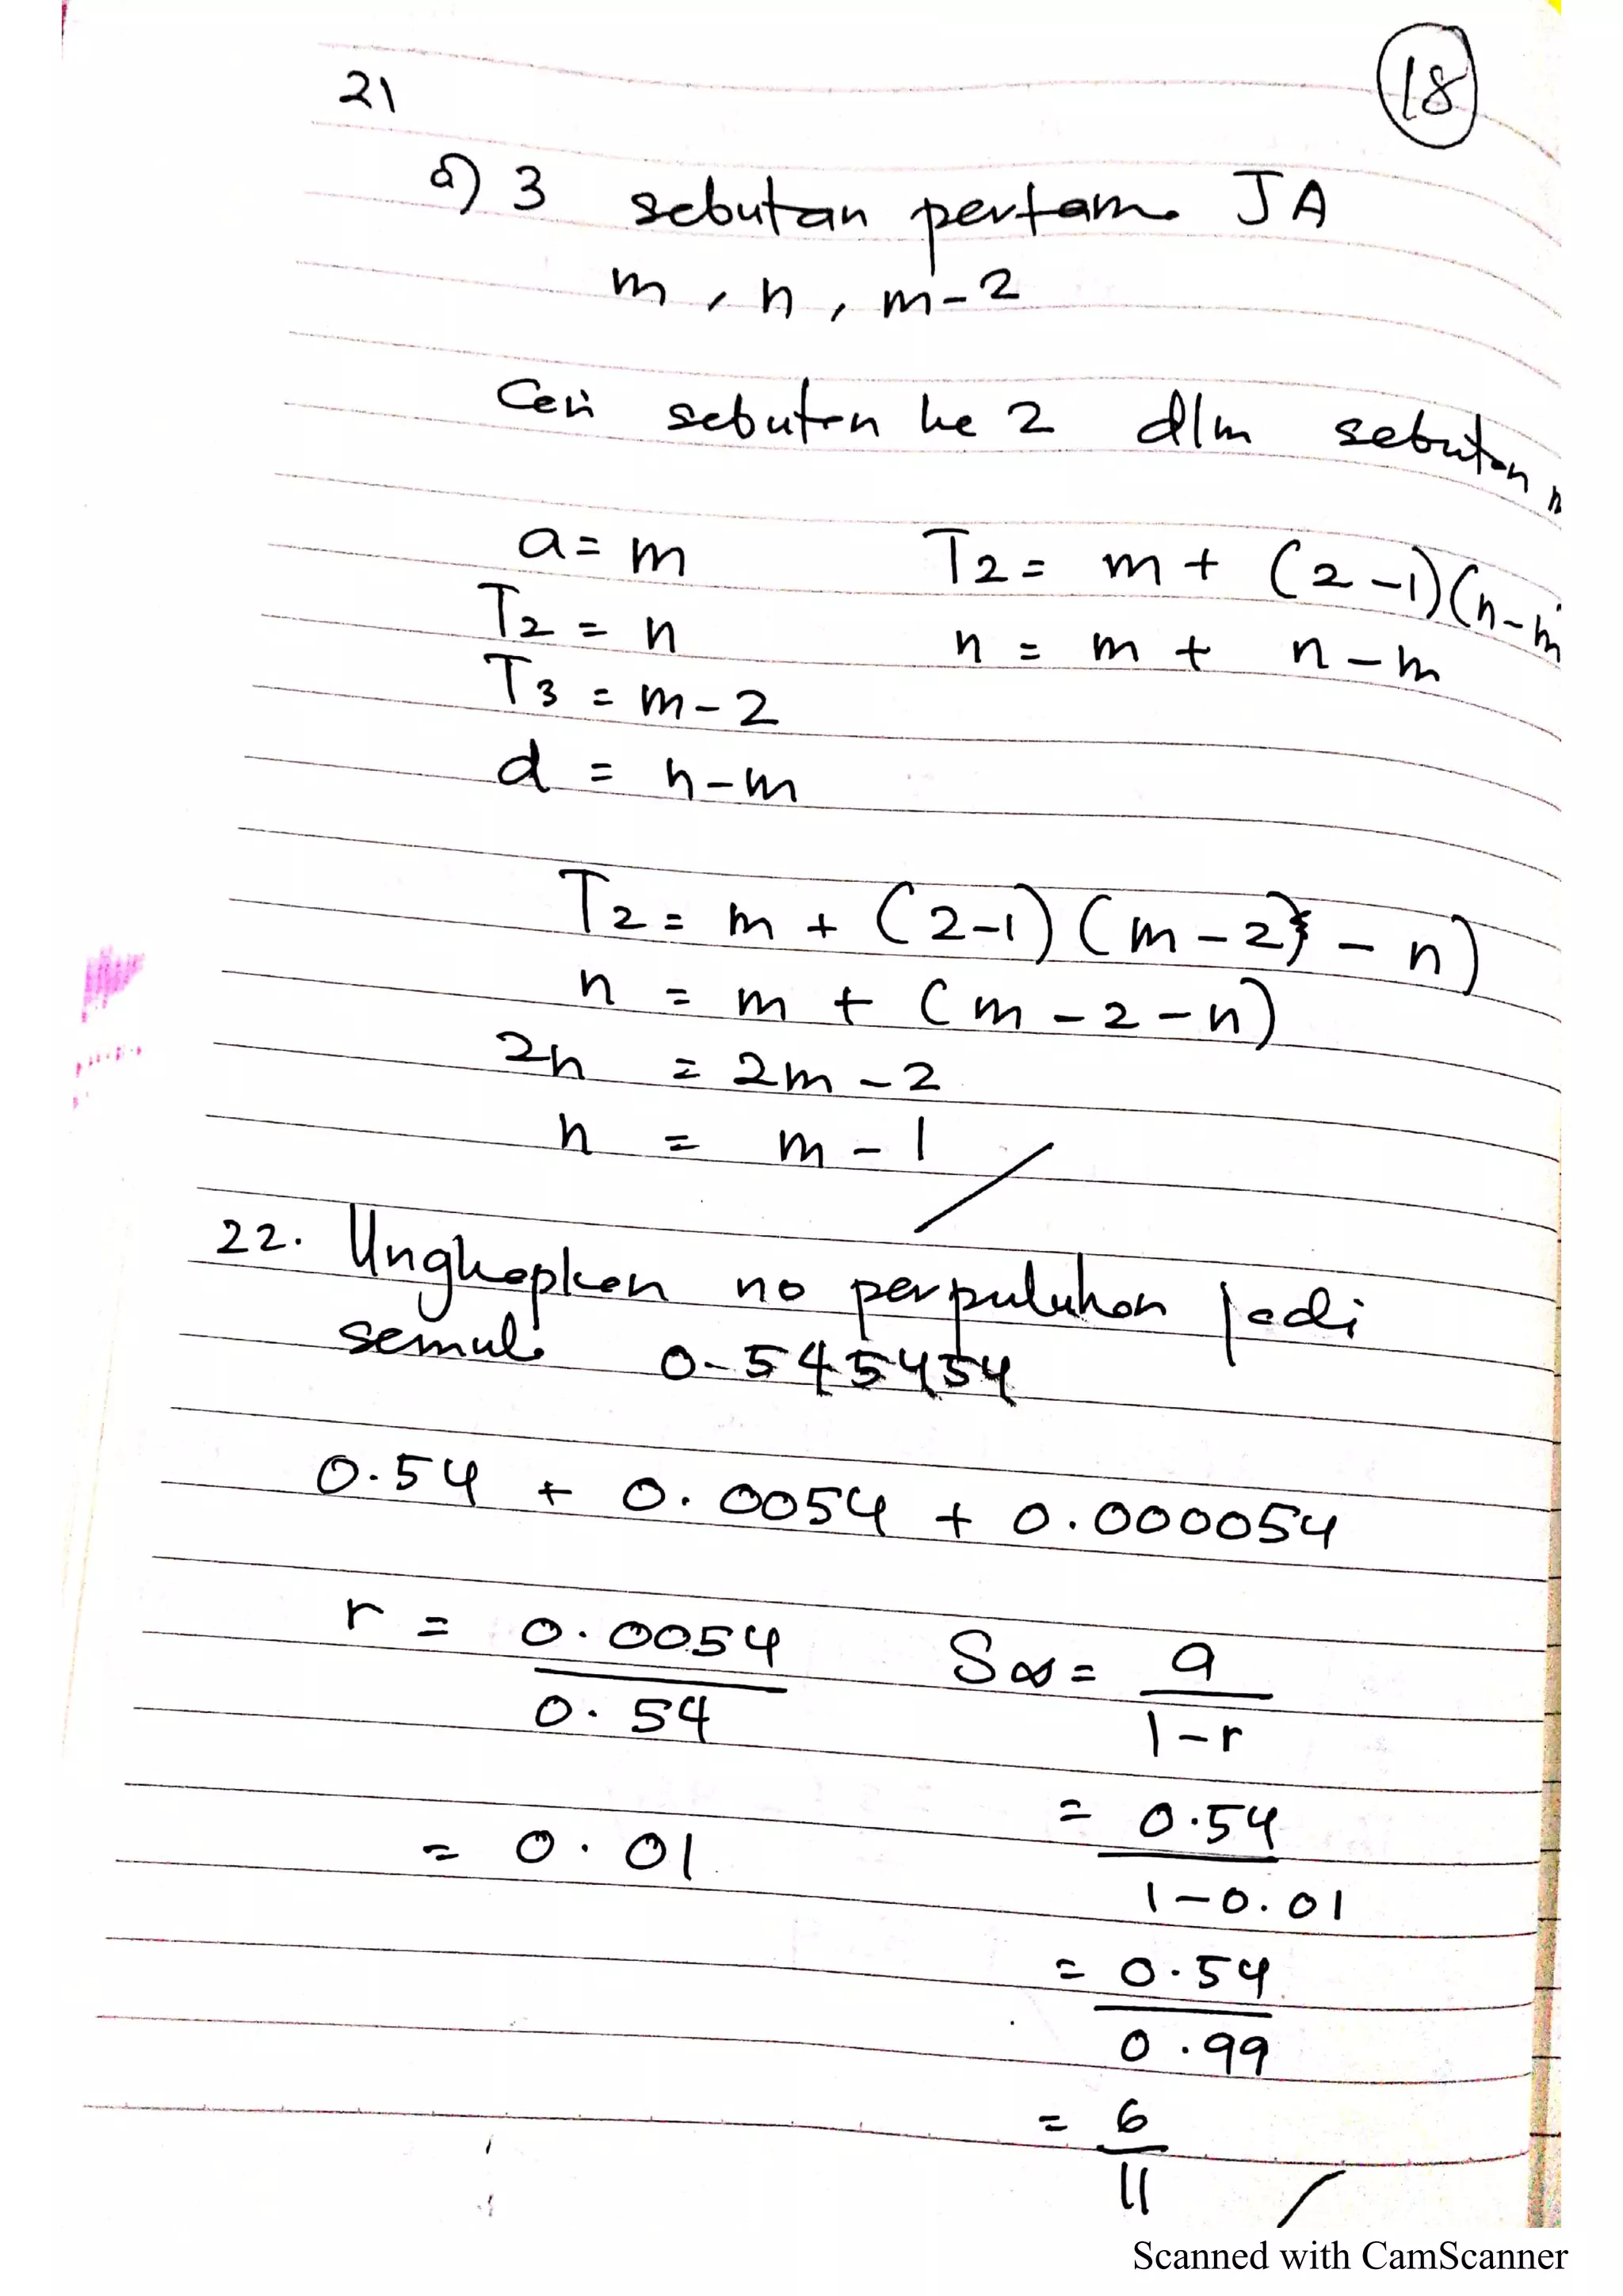 18
21
a) 3 sebutan pertama JA
m, n, m-2
Cari sebutan ke 2 dlm sebutan
a = m
T2 = n
T3 = m-2
d = n-m
T2 = m + (2-1)(n-m
n = m + n-m
T2 = m + (2-1)(m-2 - n)
n = m + (m-2-n)
2n = 2m-2
n = m-1
22. Ungkapkan no perpuluhan jadi
semula 0.545454
0.54 + 0.0054 + 0.000054
r = 0.0054
0.54
= 0.01
S∞ = a
1-r
= 0.54
1-0.01
= 0.54
0.99
= 6
11
Scanned with CamScanner